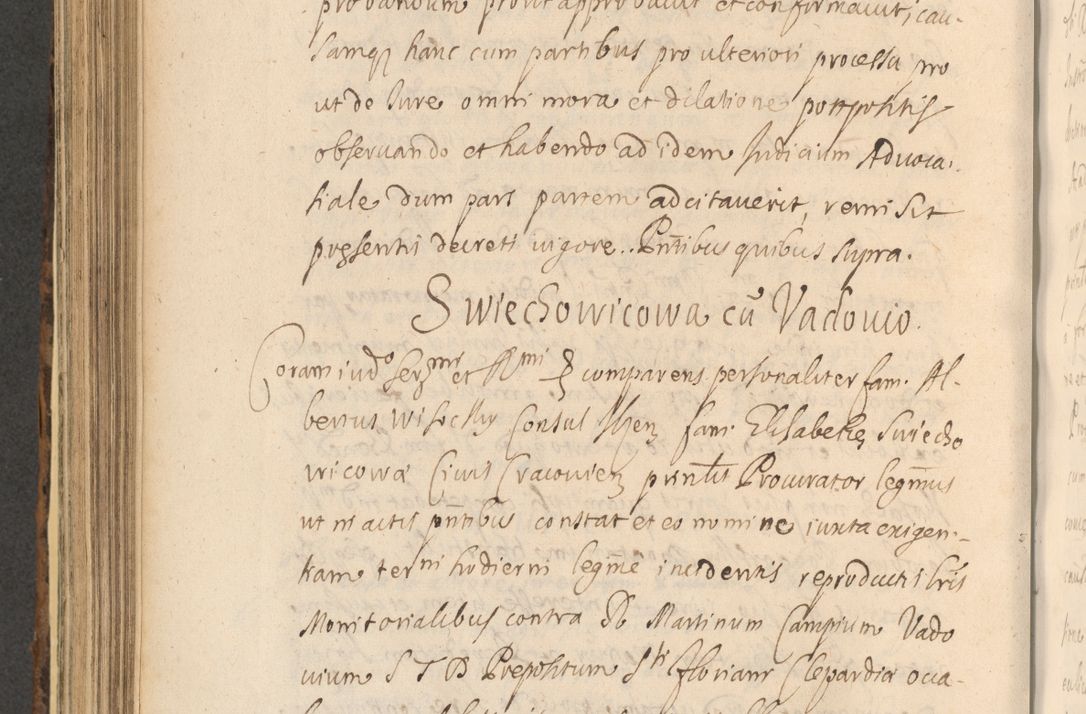 probationum prout approbavit et confirmavit, cau-
samq hanc cum partibus pro ulteriori processu pro
ut de Iure omni mora et dilatione postpositis
observando et habendo ad idem Iudicium Advoca-
tiale dum pars partem adcitaverit, remisit
presentis decreti vigore. Pntibus quibus supra.
Swiechowicowa cū Vadovio.
Coram iudo Serzmr et Rmi D comparens personaliter fam. Al-
bertus Wisocky Consul fam. Elisabethę Swiecho
wicowa Civis Cracovien pntis Procurator legmus
ut in actis pntibus constat et eo nomine iuxta exigen-
tiam termi hodierni legme incidentis reproductis lris
Monitorialibus contra D Martinum Campium Vado
vium S T D Prepositum Sti Floriani Clepardia occa-